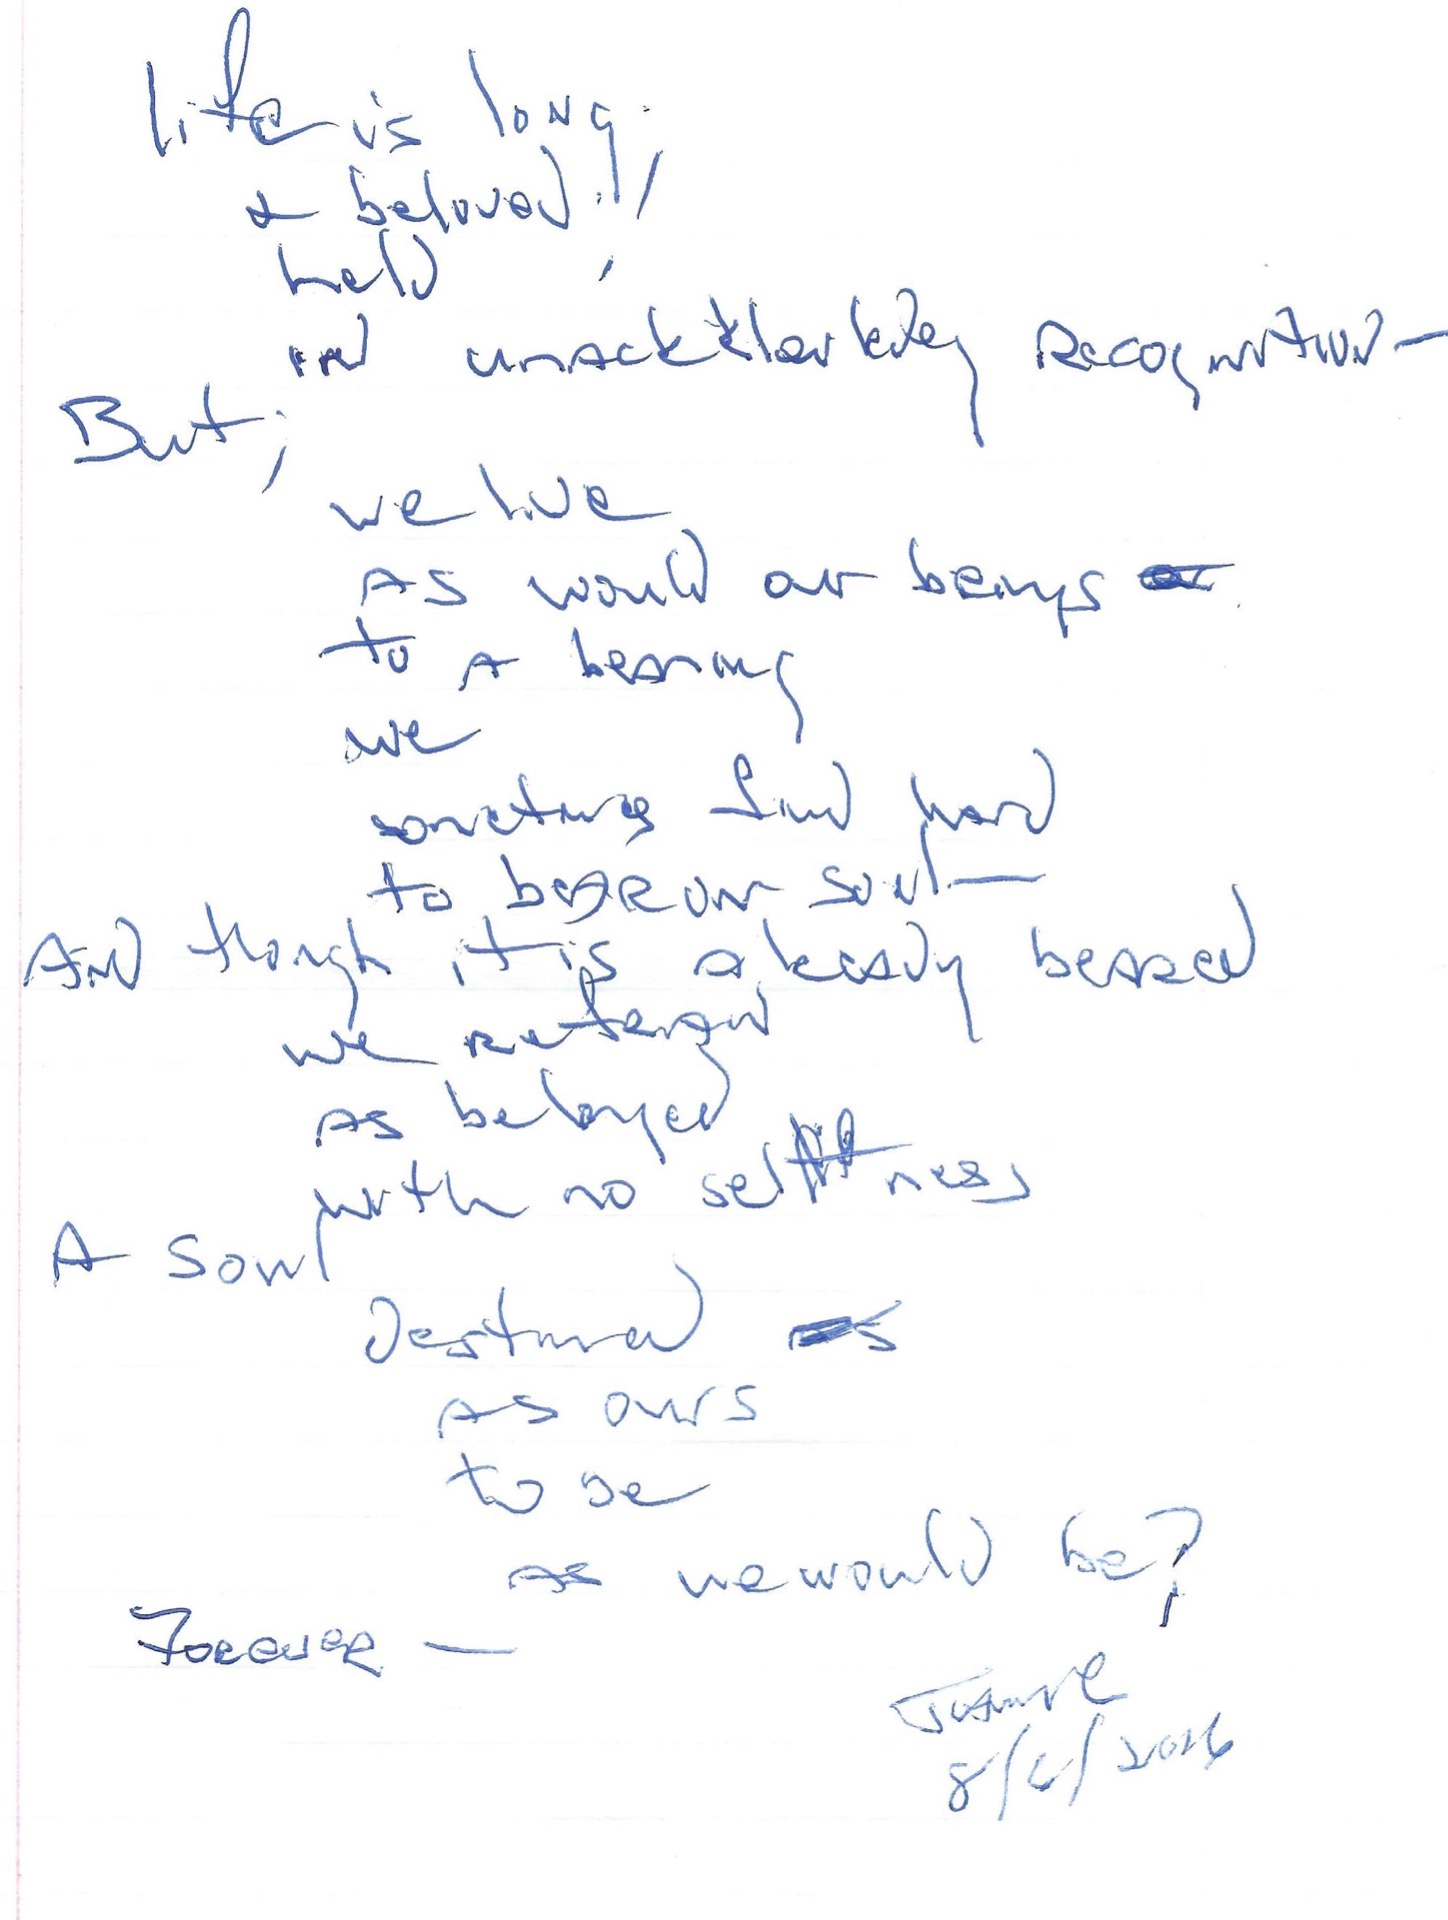 Life is long;
& beloved;
held,
in recognition—
But;
we live
As would our beings
to A bearing
we
sometimes find hard
to bear our soul—
And though it is already beared
we
As belonged
with no ness
A soul
Destined
As ours
to be
As we would be?
Forever —
2016